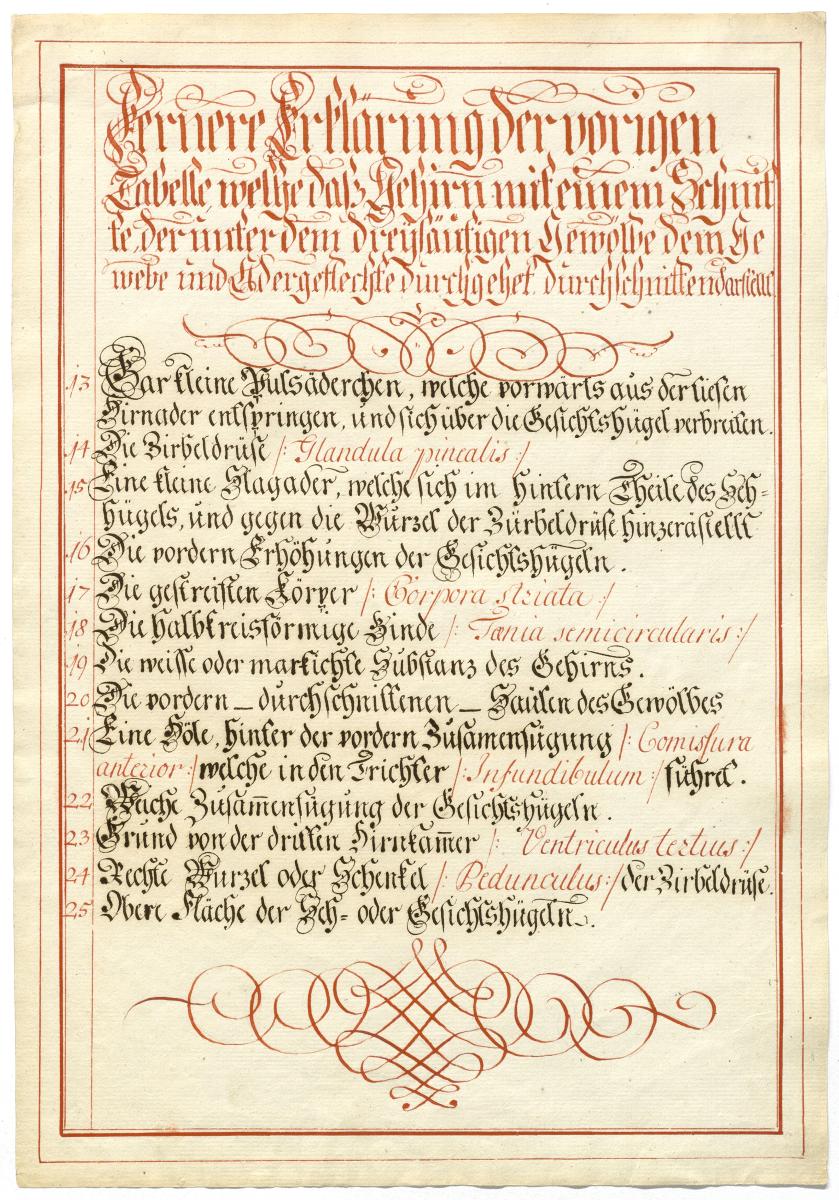 Fernere Erklärung der vorigen
Tabelle welche daß Gehirn mit einem Schnit
te, der unter dem dreysäutigen Gewölbe dem Ge
webe und Adergeflechte durchgehet durchschnitten darstellt.
13 Gar kleine Pulsäderchen, welche vorwärts aus der tiefen
Hirnader entspringen, und sich über die Gesichtshügel verbreiten.
14 Die Zirbeldrüse /: Glandula pinealis :/
15 Eine kleine Slagader, welche sich im hintern Theile des Seh-
hügels, und gegen die Wurzel der Zürbeldrüse hinzerästellt
16 Die vordern Erhöhungen der Gesichtshügeln.
17 Die gestreiften Körper /: Corpora striata :/
18 Die halbkreisförmige Binde /: Tænia semicircularis :/
19 Die weisse oder markichte Substanz des Gehirns.
20 Die vordern – durchschnittenen – Säulen des Gewölbes
21 Eine Höle, hinter der vordern Zusamenfügung /: Comissura
anterior :/ welche in den Trichter /: Infundibulum :/ führet.
22 Wache Zusam̄enfugung der Gesichtshügeln.
23 Grund von der dritten Hirnkam̄er /: Ventriculus tertius :/
24 Rechte Wurzel oder Schenkel /: Pedunculus :/ der Zirbeldrüse.
25 Obere Fläche der Seh- oder Gesichtshügeln.